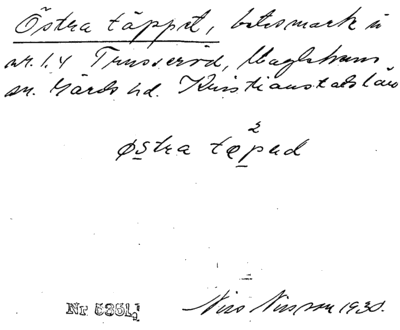 Östra täppet, betesmark u
nr. 1.4 Trusseröd, Maglehems
sn. Gärds hd. Kristianstads län
2
østra tæpad
Nr 5351,
Nils Nilsson 1930.